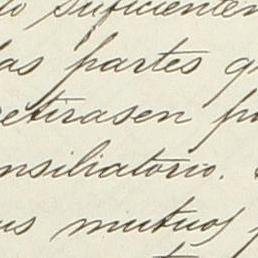 lo suficienten
las partes qu
retirasen po
nsiliatorio.
us mutuos p